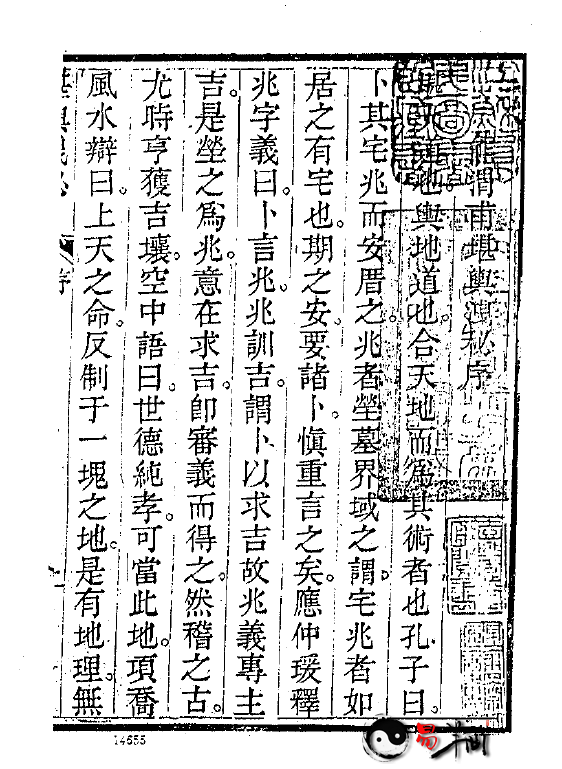 渭甫堪輿秘序
地輿地道也。合天地而爲其術者也孔子曰。
卜其宅兆而安厝之兆者塋墓界域之謂。宅兆者如
居之有宅也。期之安要諸卜。愼重言之矣。應仲瑗釋
兆字義曰。卜言兆。兆訓吉。謂卜以求吉故兆義專主
吉。是塋之爲兆。意在求吉卽審義而得之。然稽之古。
尤時亨獲吉壤。空中語曰。世德純孝。可當此地。項喬
風水辯曰。上天之命。反制于一塊之地。是有地理。無
序
14655
易